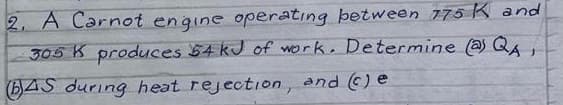 2. A Carnot engine operating between 775 K and
305 K produces 54 kJ of work. Determine (a) QA,
(b) ΔS during heat rejection, and (c) e